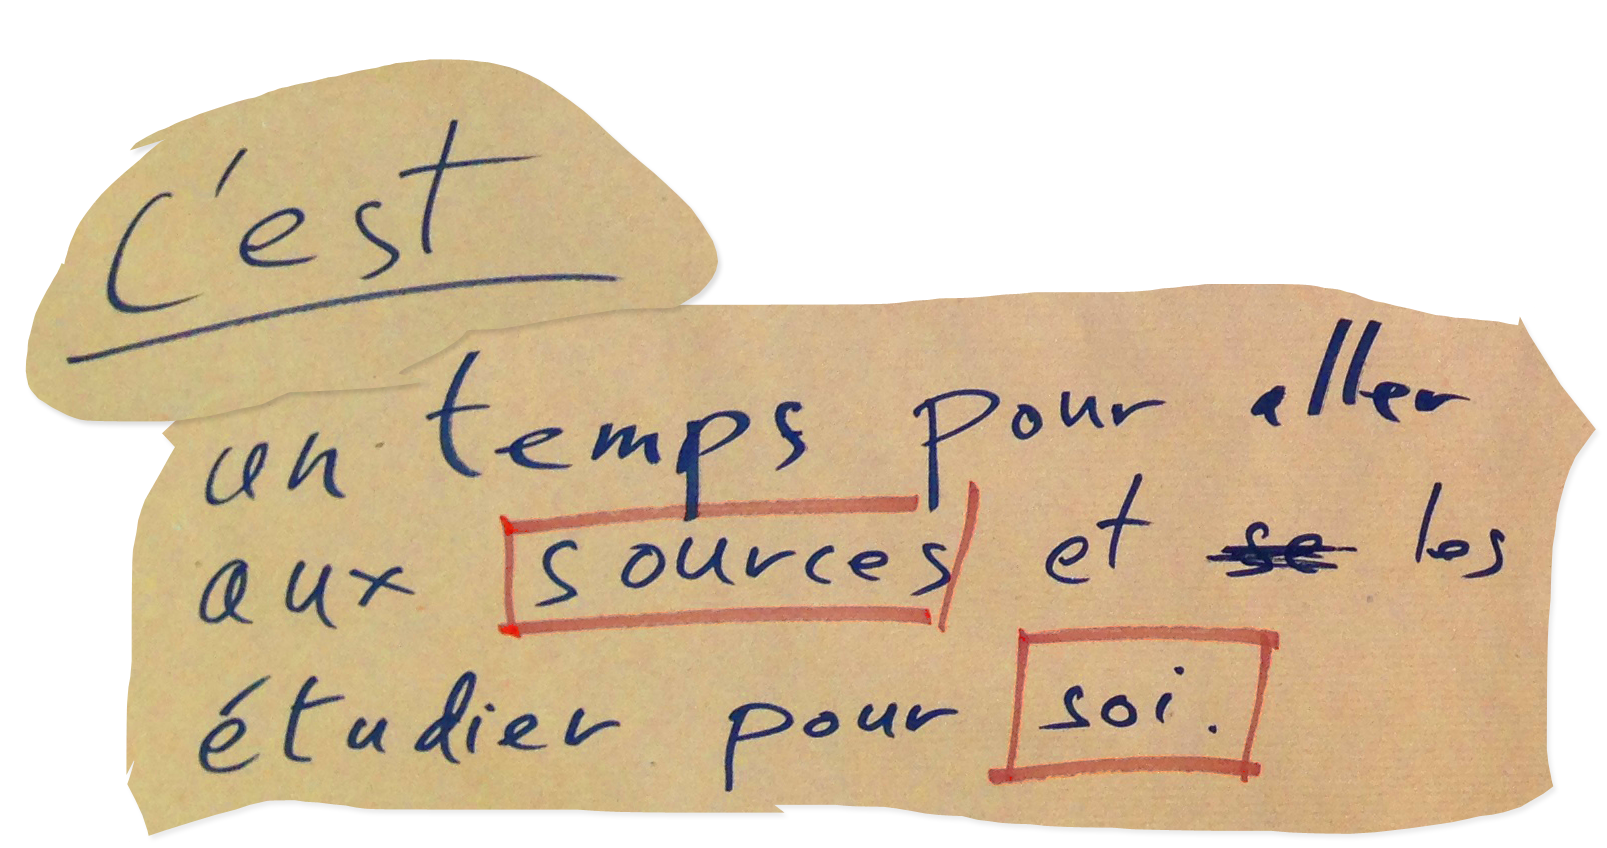 c'est
un temps pour aller
aux sources et se les
étudier pour soi.